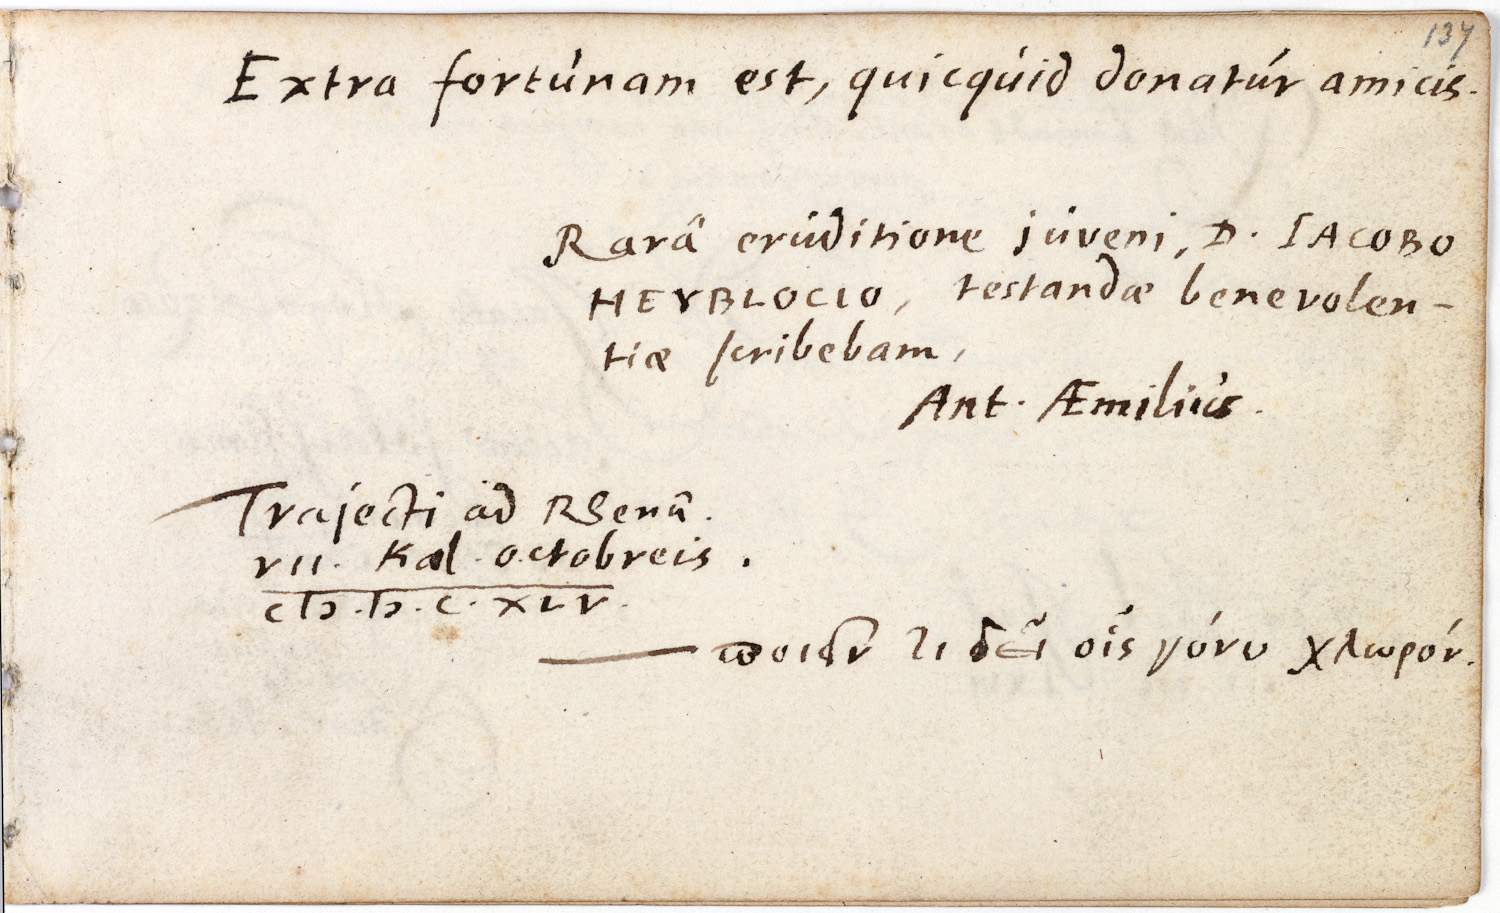 137
Extra fortúnam est, quicqúid donatúr amicis.
Rarâ erúditione júveni, D. IACOBO
HEYBLOCIO, testandæ benevolen-
tiæ scribebam,
Ant. Æmiliús.
Trajecti ad Rhenũ.
VII. Kal. octobreis.
cIↄ.Iↄ.c.XLV.
ποιεῖν τι δεῖ οἷς γόνυ χλωρόν.